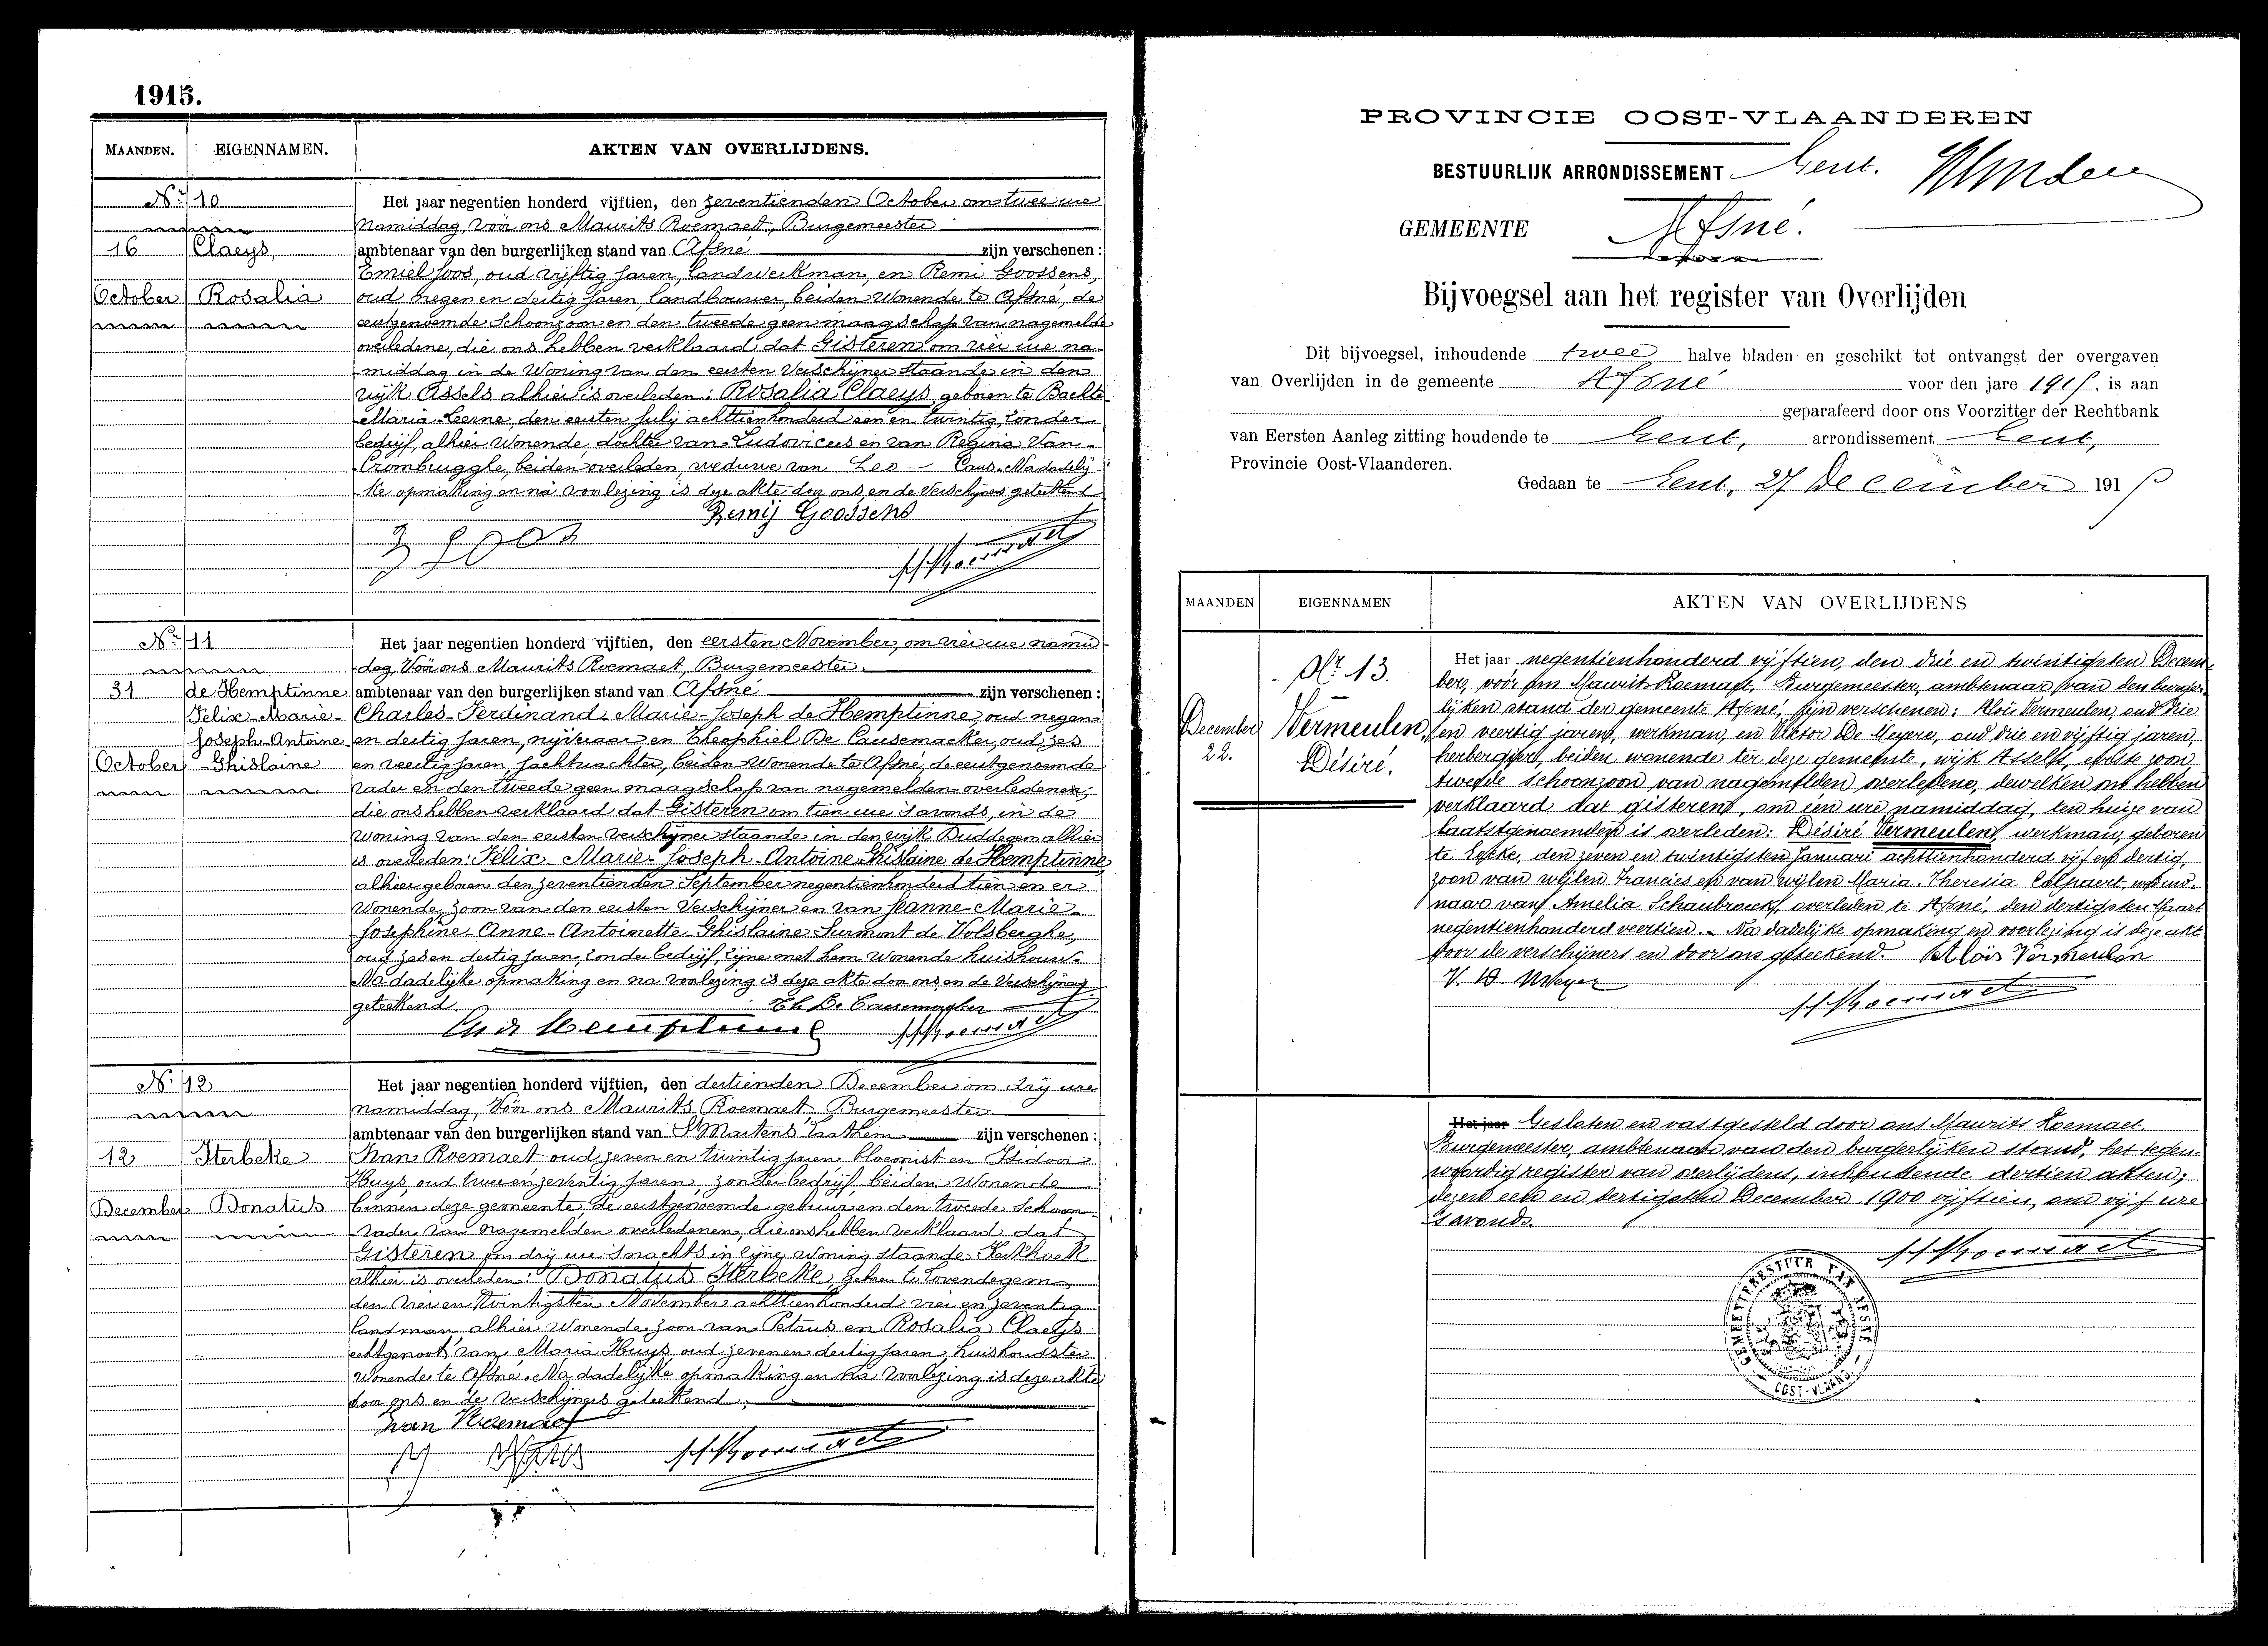 1915.
MAANDEN. EIGENNAMEN. AKTEN VAN OVERLIJDENS.
Nr 10
16 Claeys,
October Rosalia
Het jaar negentien honderd vijftien, den zeventienden October om twee ure
namiddag, vóór ons Maurits Roemaet, Burgemeester
ambtenaar van den burgerlijken stand van Afsné zijn verschenen:
Emiel Joos, oud vijftig jaren, landwerkman, en Remi Goossens,
oud negen en dertig jaren, landbouwer, beiden wonende te Afsné, de
eerstgenoemde schoonzoon en den tweede geen maagschap van nagemelde
overledene, die ons hebben verklaard dat Gisteren om vier ure na-
middag in de woning van den eersten verschijner staande in den
wijk Assels alhier is overleden: Rosalia Claeys, geboren te Bachte
Maria-Leerne, den eersten July achttienhonderd een en twintig, zonder
bedrijf, alhier wonende, dochter van Ludovicus en van Regina Van
Crombrugghe, beiden overleden, weduwe van Leo Caus. Na dadelij-
ke opmaking en na voorlezing is deze akte door ons en de verschijners geteekend
Remij Goossens
Nr 11
31 de Hemptinne
Felix-Marie-
Joseph-Antoine
October -Ghislaine
Het jaar negentien honderd vijftien, den eersten November, om vier ure namid-
dag, vóór ons Maurits Roemaet, Burgemeester
ambtenaar van den burgerlijken stand van Afsné zijn verschenen:
Charles-Ferdinand-Marie-Joseph de Hemptinne, oud negen
en dertig jaren, nijveraar en Theophiel De Causemacker, oud zes
en veertig jaren, jachtwachter, beiden wonende te Afsné, de eerstgenoemde
vader en den tweede geen maagschap van nagemelden overledenen,
die ons hebben verklaard dat Gisteren om tien ure 's avonds, in de
woning van den eersten verschijner staande in den wijk Duddegem alhier
is overleden: Félix-Marie-Joseph-Antoine-Ghislaine de Hemptinne,
alhier geboren den zeventienden September negentienhonderd tien en er
wonende, zoon van den eersten verschijner en van Jeanne-Marie-
Josephine-Anne-Antoinette-Ghislaine Surmont de Volsberghe,
oud zes en dertig jaren, zonder bedrijf, zijne met hem wonende huisvrouw.
Na dadelijke opmaking en na voorlezing is deze akte door ons en de verschijners
geteekend. Th De Causemacker
Ch de Hemptinne
Nr 12
12 Sterbeke
December Donatus
Het jaar negentien honderd vijftien, den dertienden December om drij ure
namiddag, vóór ons Maurits Roemaet Burgemeester
ambtenaar van den burgerlijken stand van St Martens Laethem zijn verschenen:
Ivan Roemaet oud zeven en twintig jaren bloemist en Isidoor
Huys, oud twee en zeventig jaren, zonder bedrijf, beiden wonende
binnen deze gemeente, de eerstgenoemde gebuur en den tweede schoon-
vader van nagemelden overledenen, die ons hebben verklaard dat
Gisteren om drij ure 's nachts in zijne woning staande Kerkhoek
alhier is overleden: Donatus Sterbeke, geboren te Lovendegem
den vier en twintigsten November achttienhonderd vier en zeventig
landman, alhier wonende, zoon van Petrus en Rosalia Claeys
echtgenoot van Maria Huys oud zeven en dertig jaren, huishoudster
wonende te Afsné. Na dadelijke opmaking en na voorlezing is deze akte
door ons en de verschijners geteekend.
Ivan Roemaet
PROVINCIE OOST-VLAANDEREN
BESTUURLIJK ARRONDISSEMENT Gent.
GEMEENTE Afsné.
Bijvoegsel aan het register van Overlijden
Dit bijvoegsel, inhoudende twee halve bladen en geschikt tot ontvangst der overgaven
van Overlijden in de gemeente Afsné voor den jare 1915, is aan
geparafeerd door ons Voorzitter der Rechtbank
van Eersten Aanleg zitting houdende te Gent, arrondissement Gent,
Provincie Oost-Vlaanderen.
Gedaan te Gent, 27 December 1915
MAANDEN EIGENNAMEN AKTEN VAN OVERLIJDENS
Nr 13.
December Vermeulen,
22. Désiré.
Het jaar negentienhonderd vijftien, den drie en twintigsten Decem-
ber, voor ons Maurits Roemaet, Burgemeester, ambtenaar van den burger-
lijken stand der gemeente Afsné, zijn verschenen: Aloïs Vermeulen, oud drie
en veertig jaren, werkman, en Viktor De Meyere, oud drie en vijftig jaren,
herbergier, beiden wonende ter deze gemeente, wijk Assels, eerste zoon,
tweede schoonzoon van nagemelden overledene, dewelken ons hebben
verklaard dat gisteren, om één ure namiddag, ten huize van
laatstgenoemden is overleden: Désiré Vermeulen, werkman, geboren
te Eeke, den zeven en twintigsten Januari achttienhonderd vijf en dertig,
zoon van wijlen Francies en van wijlen Maria-Theresia Colpaert, weduw-
naar van Amelia Schaubroeck, overleden te Afsné, den dertigsten Maart
negentienhonderd veertien. - Na dadelijke opmaking en voorlezing is deze akt
door de verschijners en door ons geteekend. Aloïs Vermeulen
V. D. Meyer
Het jaar Gesloten en vastgesteld door ons Maurits Roemaet
Burgemeester, ambtenaar van den burgerlijken stand, het tegen-
woordig register van overlijdens, inhoudende dertien akten;
dezen een en dertigsten December 1900 vijftien, om vijf ure
's avonds.
OOST-VLAAND